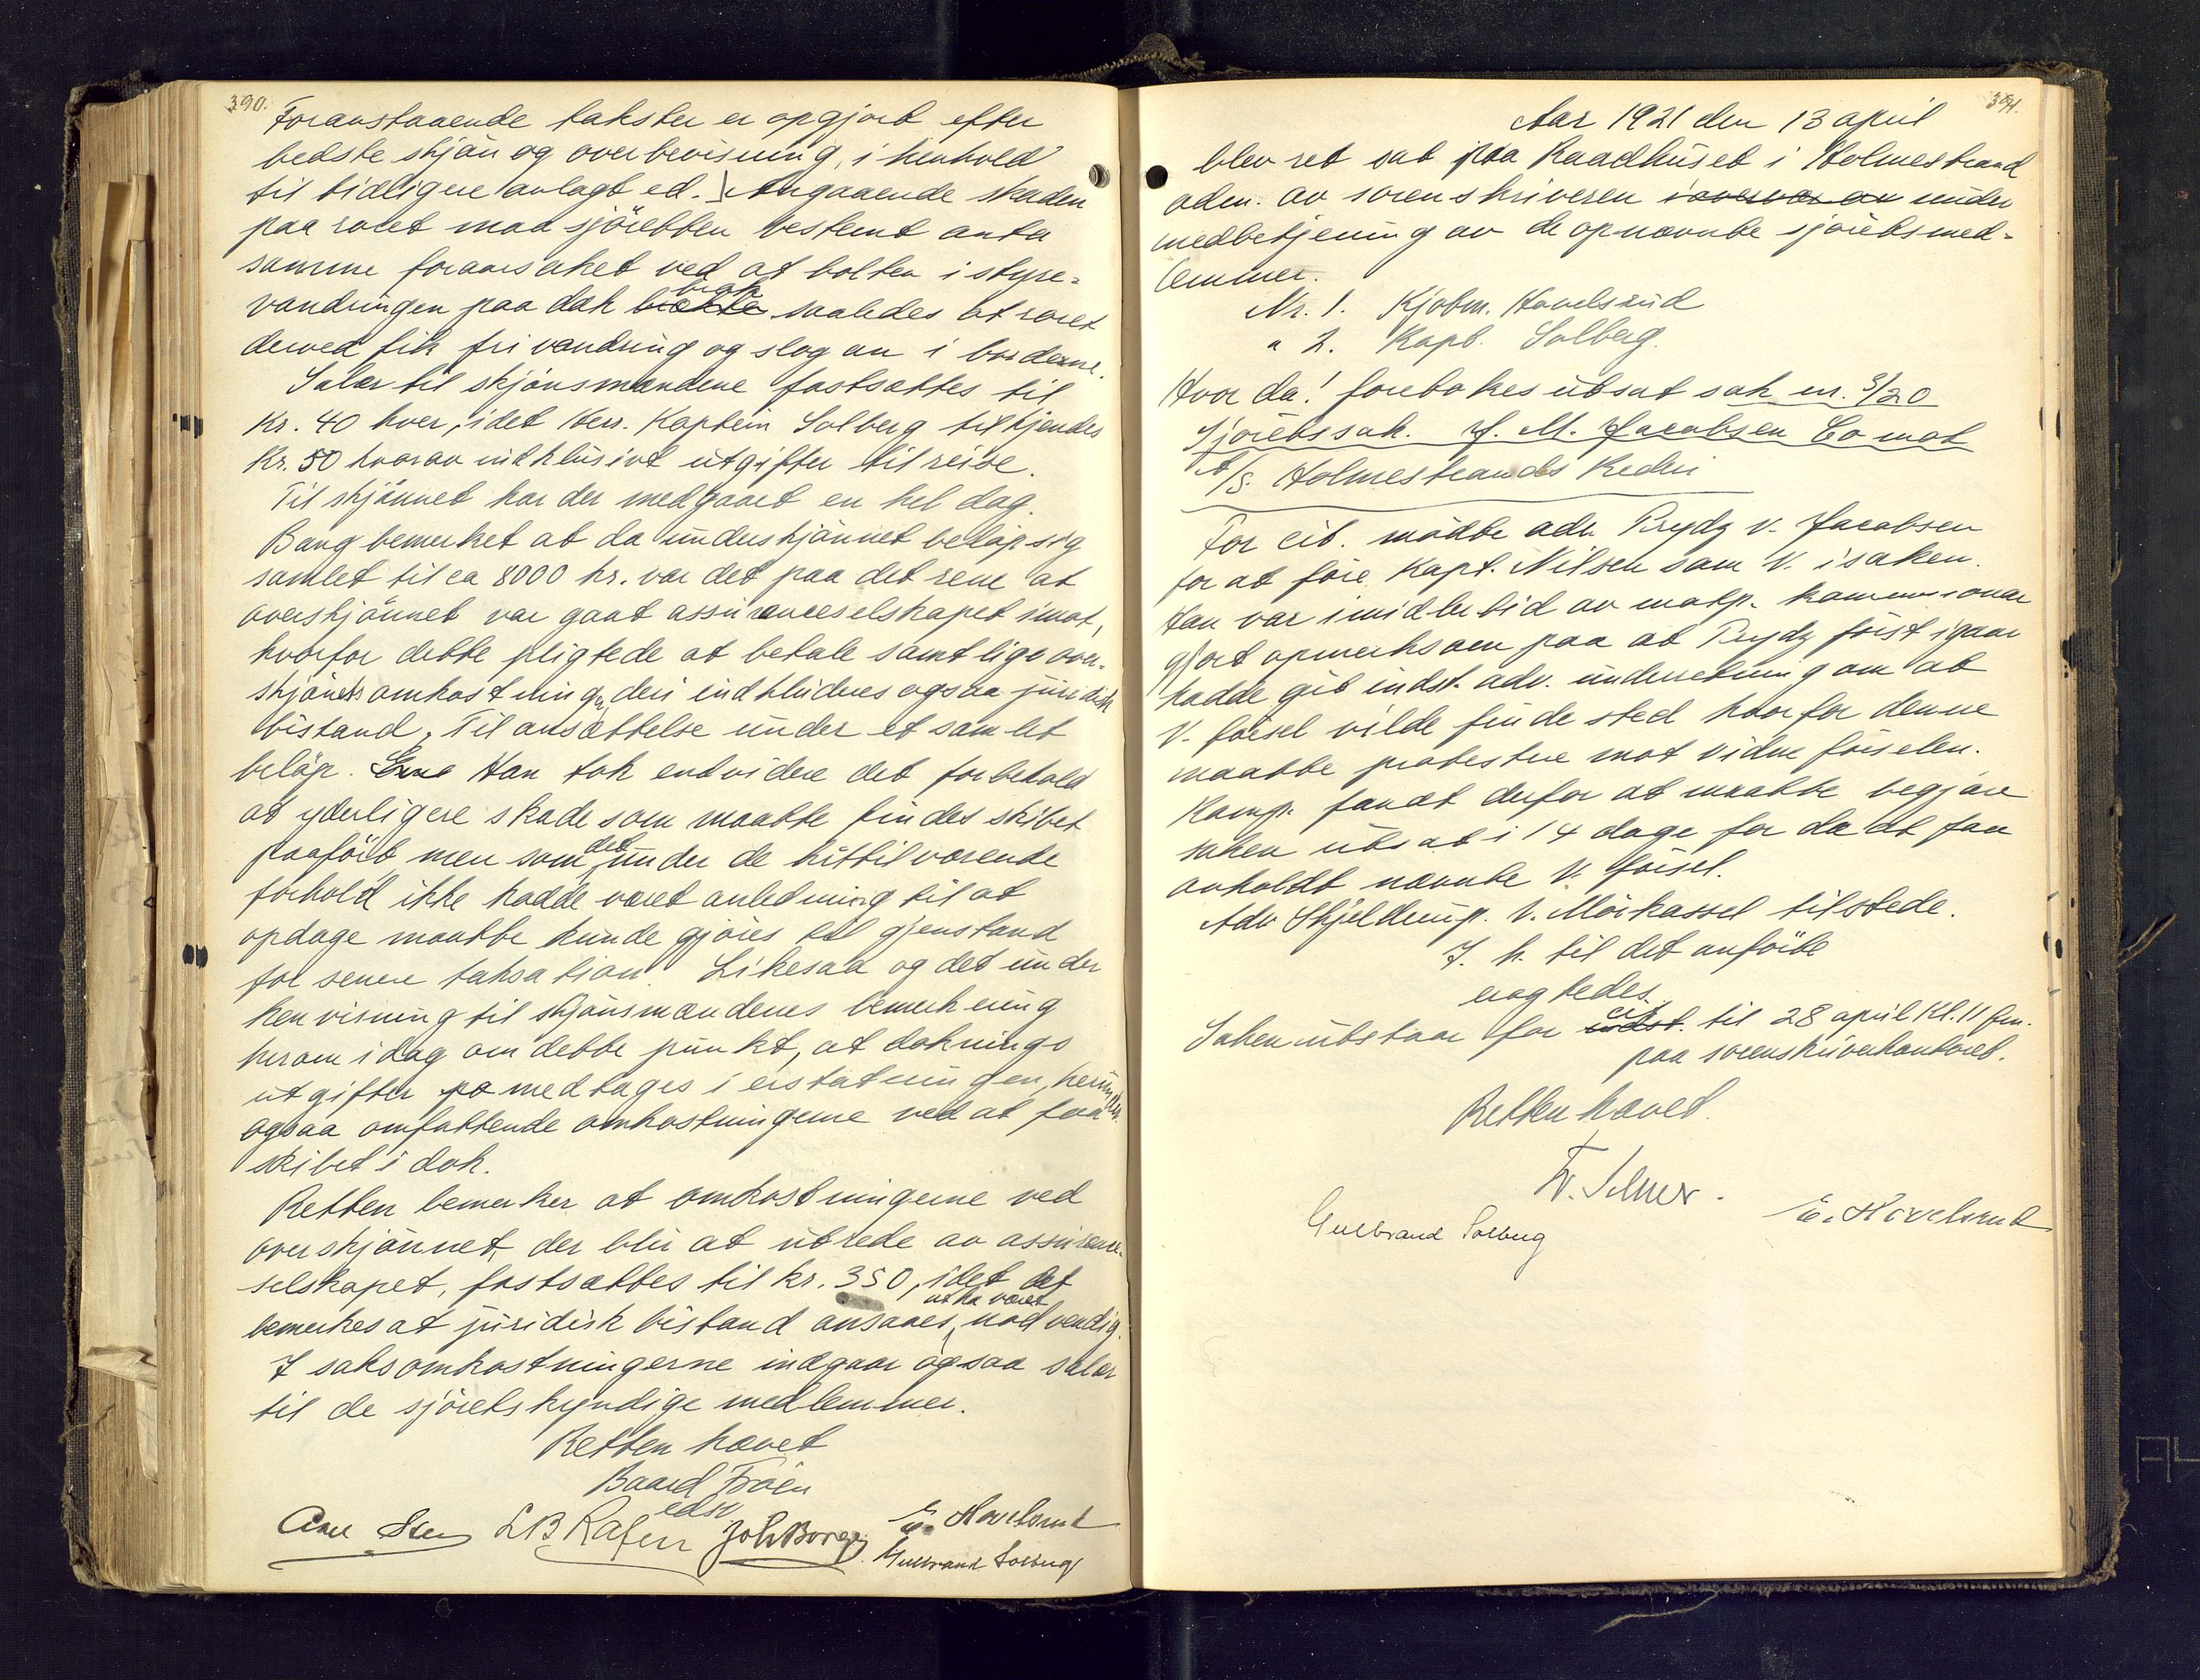 390.
Foranstaaende takster er opgjort efter
bedste skjøn og overbevisning, i henhold
til tidligere avlagt ed. Angaaende skaden
paa roret maa sjøretten bestemt anta
samme foraarsaket ved at bolten i styre-
vandringen paa dæk brak saaledes at roret
derved fik fri vandring og slog an i borderne.
Salær til skjønsmændene fastsattes til
Kr. 40 hver, idet herr. Kaptein Solberg tilkjendes
Kr. 50 hvorav indklusivt utgifter til reise.
Til skjønnet har der medgaaet en hel dag.
Bang bemerket at da underskjønnet beløp sig
samlet til ca 8000 kr. var det paa det rene at
overskjønnet var gaat assuranceselskapet imot,
hvorfor dette pligtede at betale samtlige over-
skjønets omkostninger, deri indkluderes ogsaa juridisk
bistand, Til ansættelse under et samlet
beløp. Han tok endvidere det forbehold
at yderligere skade som maatte findes skibet
paaført, men som det under de hittilværende
forhold ikke hadde været anledning til at
opdage maatte kunde gjøres til gjenstand
for senere taksation. Likesaa og det under
henvisning til skjønsmændenes bemerkning
herom idag om dette punkt, at doknings
utgifter medtages i erstatningen, herunder
ogsaa omfattende omkostningerne ved at faa
skibet i dok.
Retten bemerker at omkostningerne ved
overskjønnet, der blir at utrede av assurance-
selskapet, fastsattes til kr. 350, idet det
bemerkes at juridisk bistand ansaaes at ha været nødvendig.
I saksomkostningerne indgaar ogsaa salær
til de sjøretskyndige medlemmer.
Retten hævet
Baard Frøen
edsv
L B Rafen Joh Borge E. Hovelsrud
Gulbrand Solberg
391.
Aar 1921 den 13 april
blev ret sat paa Raadhuset i Holmestrand
adm. av sorenskriveren under
medbetjening av de opnævnte sjøretsmed-
lemmer.
Nr. 1. Kjøbm. Hovelsrud
" 2. Kapt. Solberg.
Hvor da! foretokes utsat sak nr. 3/20
Sjøretssak. J. M. Jacobsen Co mot
A/S. Holmestrands Rederi
For cit. mødte adv. Prydz v. Jacobsen
for at føre Kapt. Nilsen som V. i saken.
Han var imidlertid av motp.
gjort opmerksom paa at Prydz først igaar
hadde git indst. adv. underretning om at
V. førsel vilde finde sted hvorfor denne
maatte protestere mot vidneførselen.
Komp. fandt derfor at maatte begjære
saken utsat i 14 dage for da at faa
avholdt nævnte V. førsel.
Adv Skjelderup. v. Mørkassel tilstede.
I. h. til det anførte
eragtedes.
Saken utstaar for cit. til 28 april Kl. 11 fm.
paa sorenskriverkontoret.
Retten hævet.
Gulbrand Solberg E. Hovelsrud